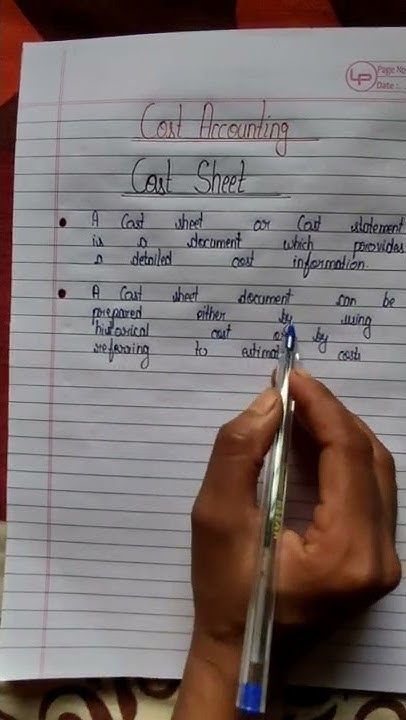 LP
Page No
Date :
Cost Accounting
Cost Sheet
• A Cost sheet or Cost statement
is a document which provides
a detailed cost information.
• A Cost sheet document can be
prepared either by using
historical cost by
referring to costs